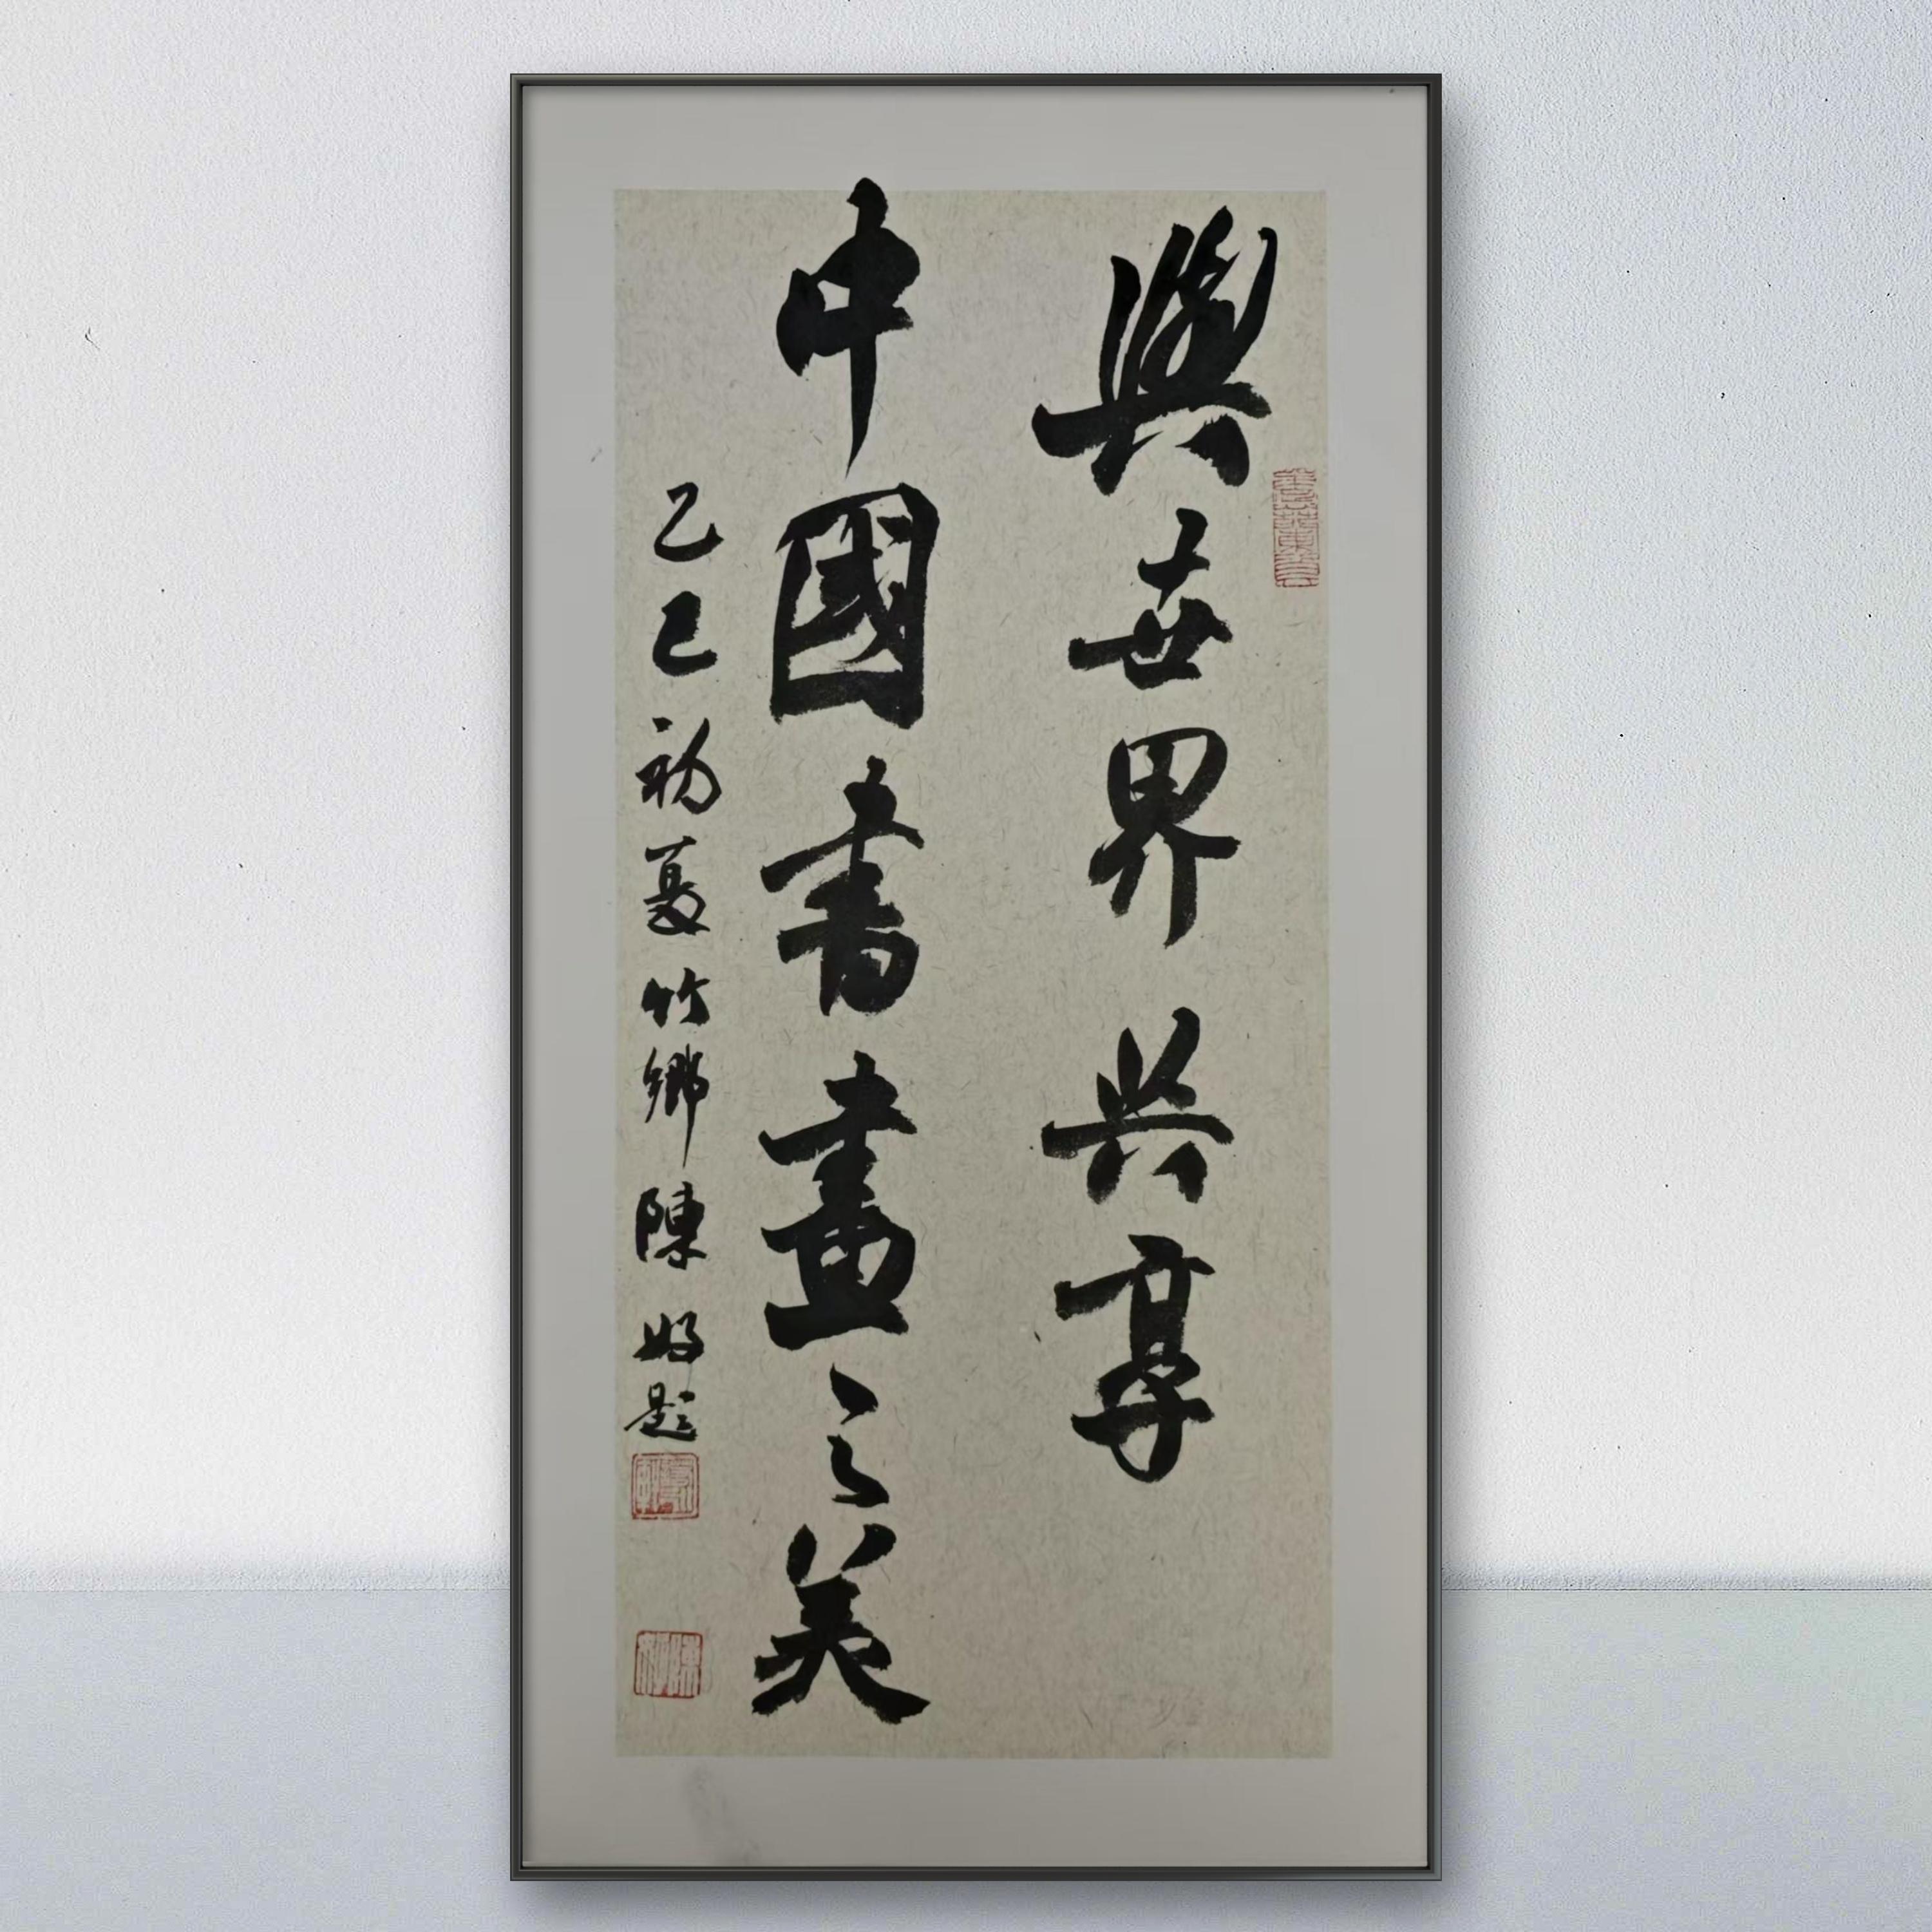 與世界共享
中國書畫之美
乙巳初夏竹鄉陳題